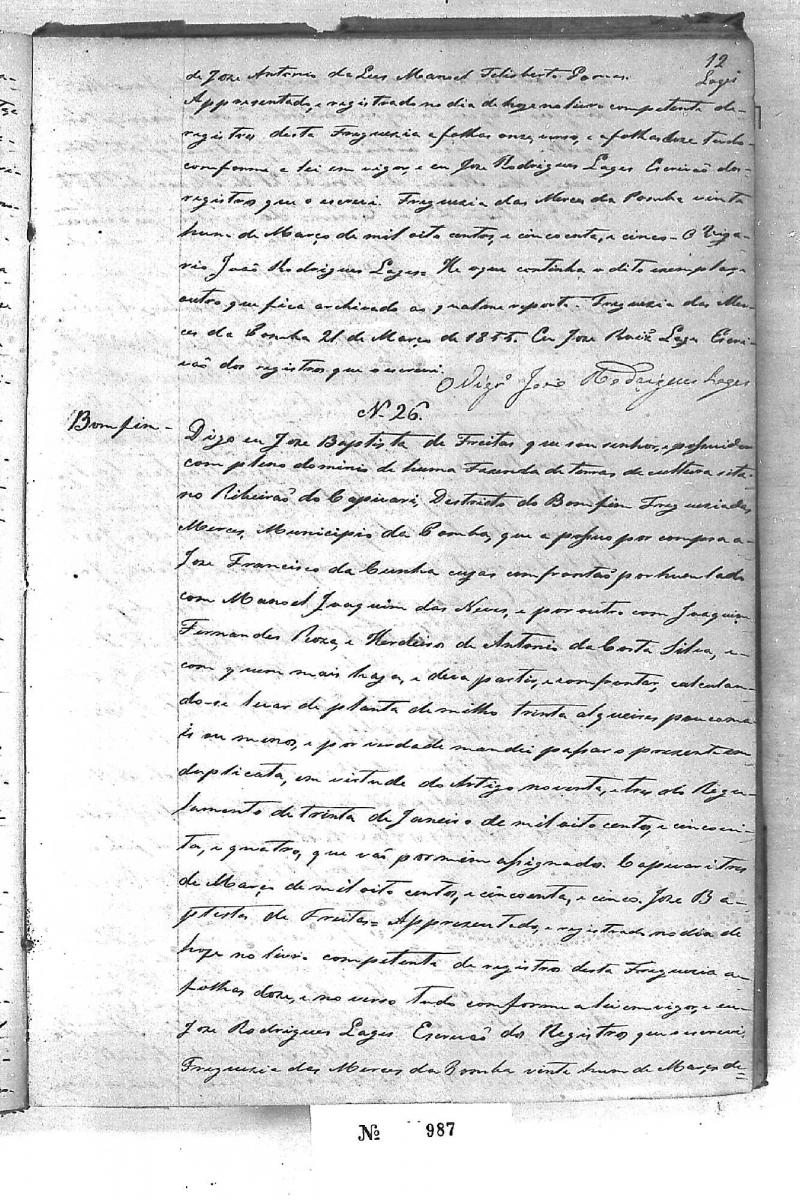 12
Lages
de Joze Antonio da Luz Manoel Felisberto
Appresentado, e registrado no dia de hoje no livro competente de
registros desta Freguezia a folhas onze, verso, e a folhas doze tudo
conforme a lei em vigor, e eu Joze Rodrigues Lages Escrivaõ dos
registros que o escrevi. Freguezia das Merces da Pomba vinte
hum de Março de mil oito centos, e cincoenta, e cinco - O Viga-
rio Joaõ Rodrigues Lages. He o que continha o dito exemplar
outro que fica archivado ao qual me reporto. Freguezia das Mer-
ces da Pomba 21 de Março de 1855. Eu Joze Roiz Lages Escri-
vaõ dos registros que o escrevi.
O Vigrº Joaõ Rodrigues Lages
N. 26.
Bomfim -
Digo eu Joze Baptista de Freitas que sou senhor, e possuidor
com pleno dominio de huma Fazenda de terras de cultura sita
no Ribeiraõ do Capivari, Destricto do Bomfim Freguezia das
Merces, Municipio da Pomba, que a possuo por compra a
Joze Francisco da Cunha cujas confrontaõ por hum lado
com Manoel Joaquim das Neves, e por outro com Joaquim
Fernandes Roza, e Herdeiros de Antonio da Costa Silva, e
com quem mais haja, e deva partir, e confrontar, calculan-
do-se levar de planta de milho trinta alqueires pouco ma-
is ou menos, e por verdade mandei passar o presente em
duplicata, em virtude do Artigo noventa, e tres do Regu-
lamento de trinta de Janeiro de mil oito centos, e cincoen-
ta, e quatro, que vaõ por mim assignado. Capivari tres
de Março de mil oito centos, e cincoenta, e cinco. Joze Ba-
ptista de Freitas = Appresentado, e registrado no dia de
hoje no livro competente de registros desta Freguezia a
folhas doze, e no verso tudo conforme a lei em vigor, e eu
Joze Rodrigues Lages Escrivaõ dos Registros, que o escrevi
Freguezia das Merces da Pomba vinte hum de Março de
Nº 987